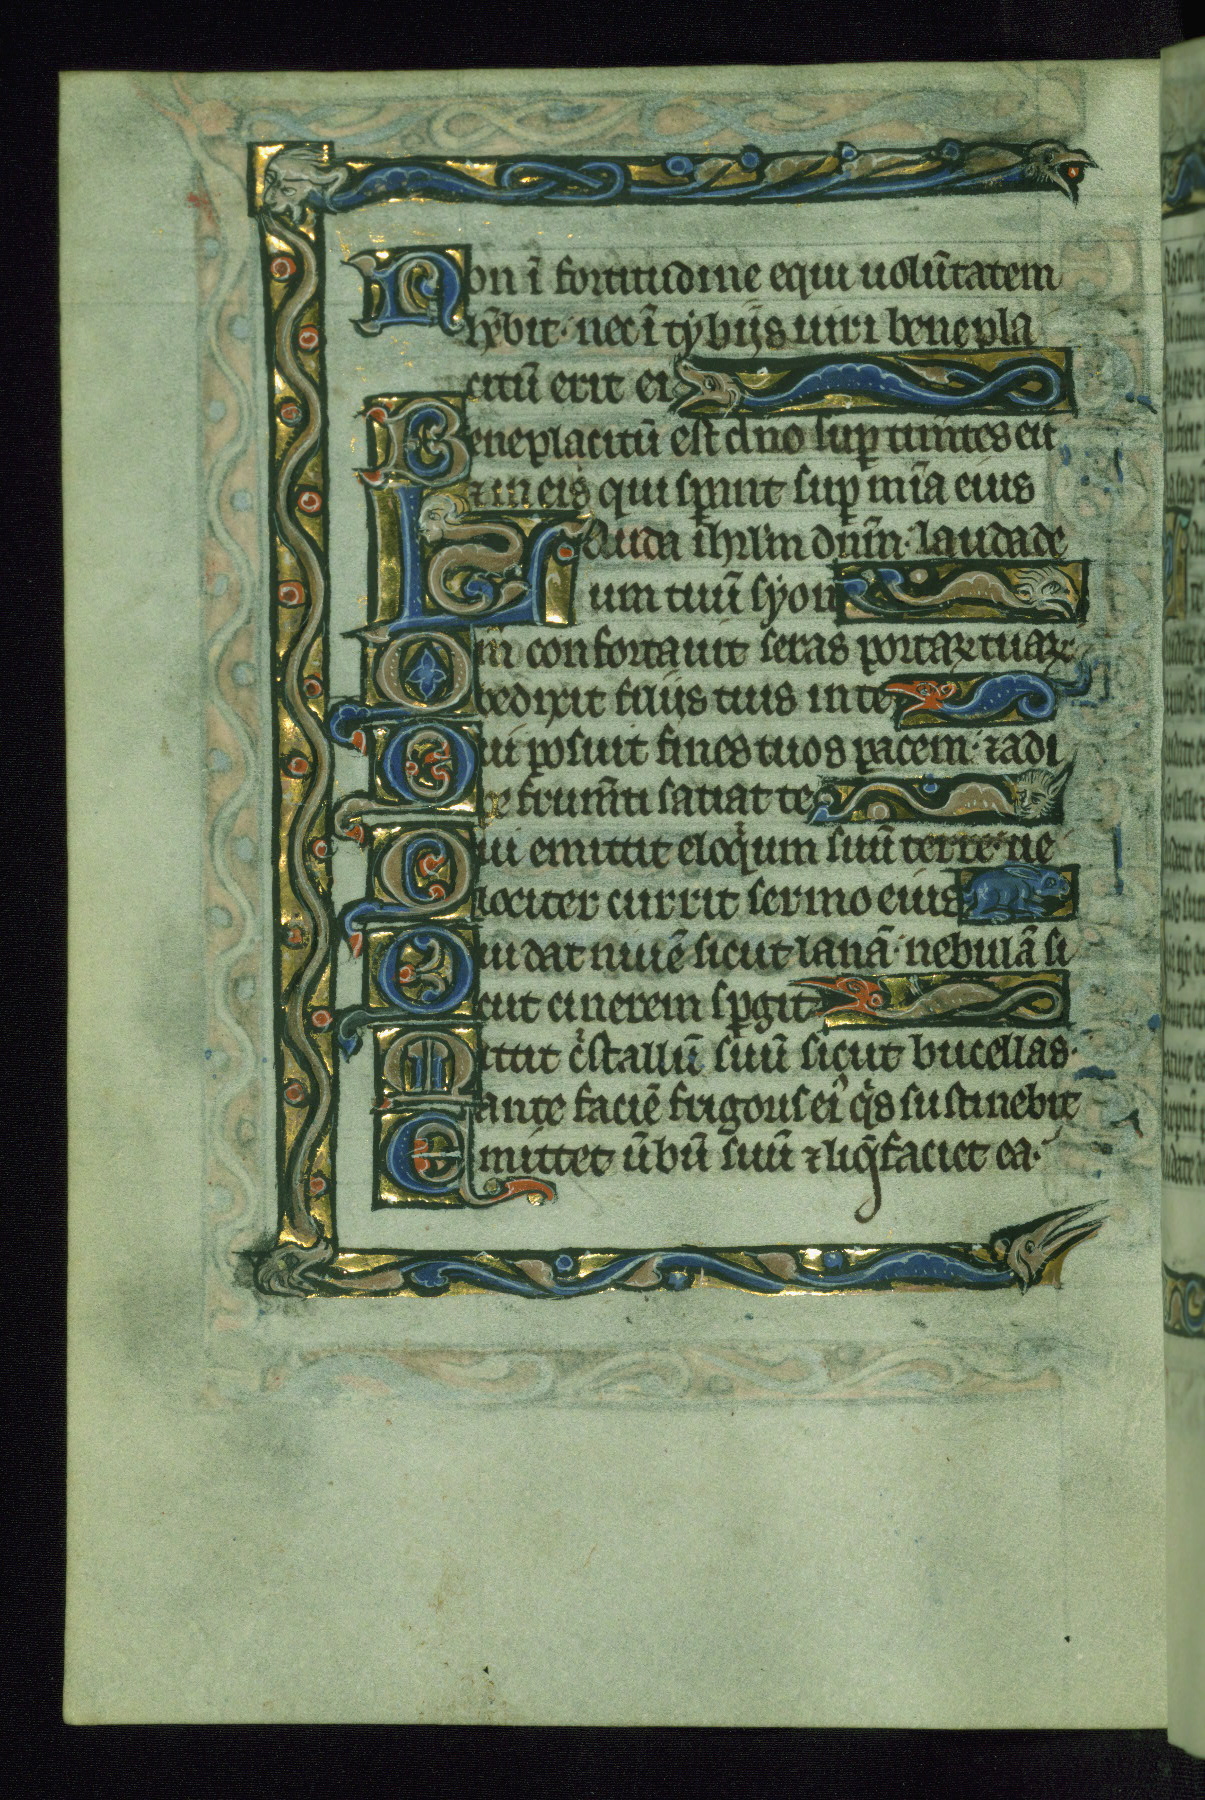 Non ī fortitudine equi uolūtatem
hēbit· nec ī tybijs uiri benepla
citū erit ei
Beneplacitū est dno sup timtes eū
⁊ in eis qui spant sup mīa eius
Lauda ihrlm dnm· lauda de
um tuū syon
Qm confortauit seras portaꝝ tuaꝝ
bedixit filijs tuis in te
Qui posuit fines tuos pacem· ⁊ adi
pe frumti satiat te
Qui emittit eloquium suū terre· ue
lociter currit sermo eius
Qui dat niuē sicut lanā· nebulā si
cut cinerem spgit
Mittit cstallū suū sicut bucellas·
ante faciē frigoris ei qis sustinebit
Emittet ūbū suū ⁊ liqfaciet ea·